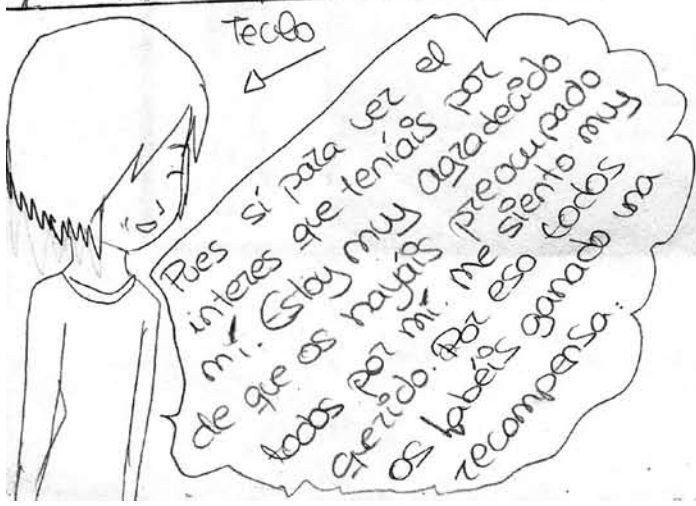 Teclo
Pues sí para ver el
interes que teníais por
mí. Estoy muy agradecido
de que os hayáis preocupado
todos por mí. Me siento muy
querido. Por eso todos
os habéis ganado una
recompensa.